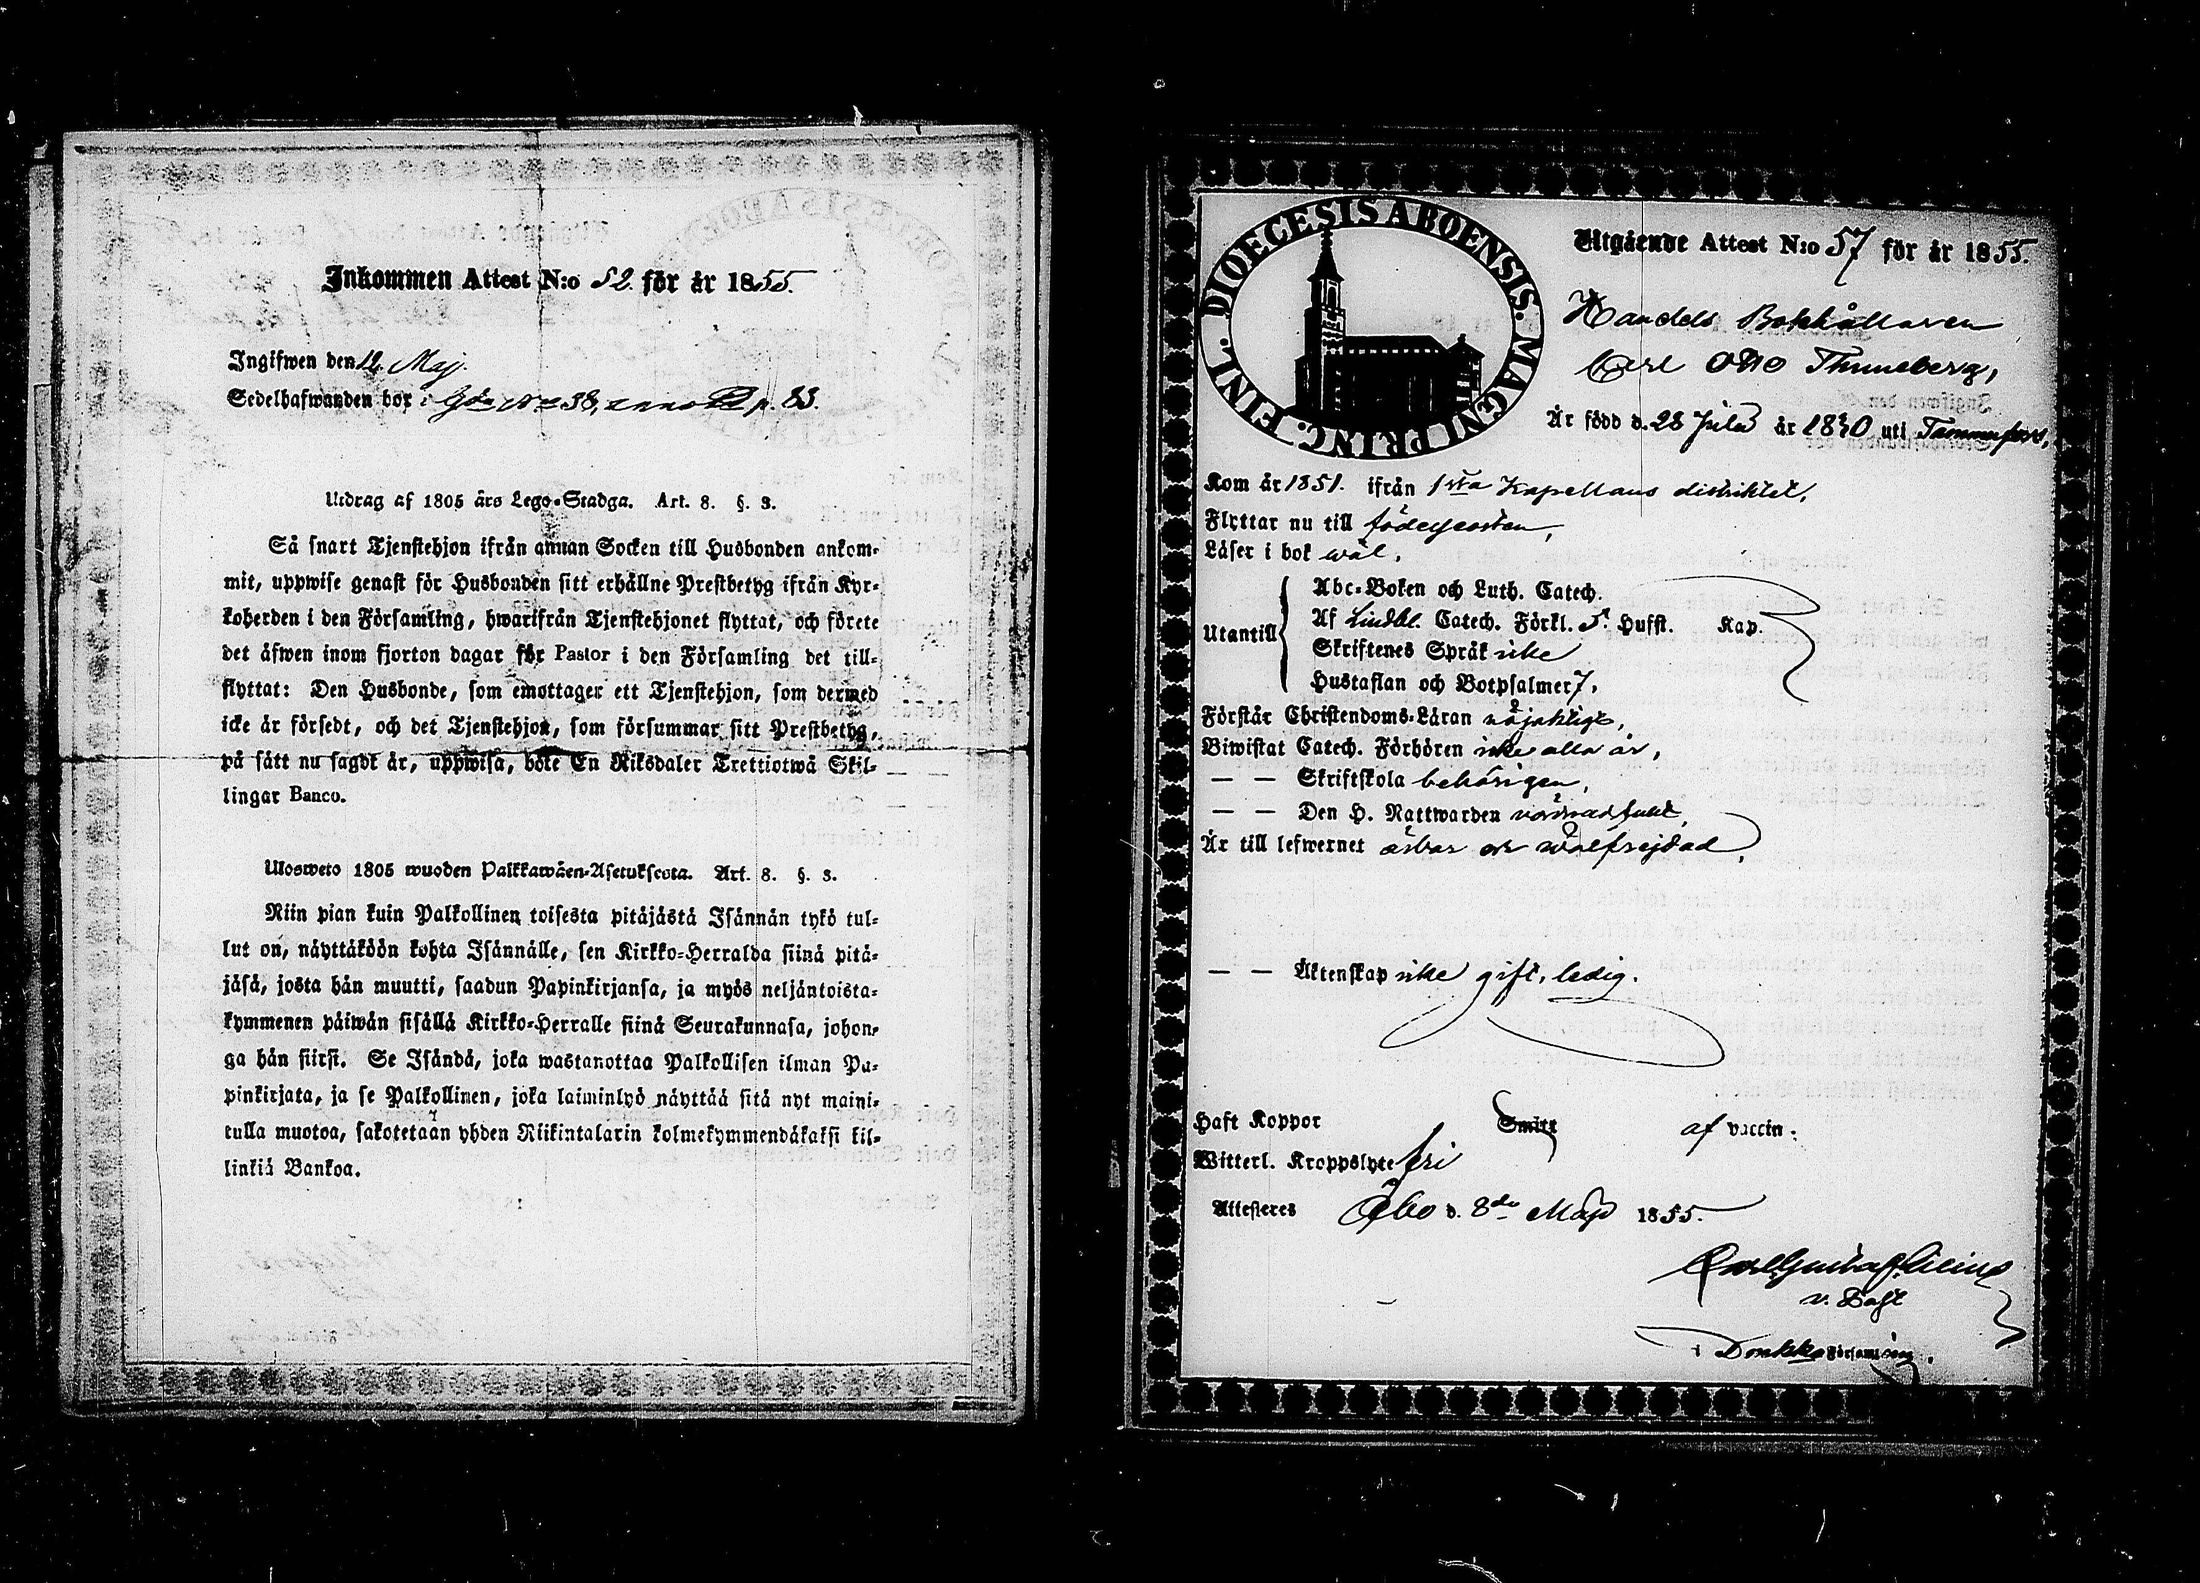 Inkommen Attest N:o 52 för år 1855.
Ingifwen den 12 Maj.
Sedelhafwanden bor i N:o 38, p. 83.
Utdrag af 1805 års Lego-Stadga. Art. 8. §. 3.
Så snart Tjenstehjon ifrån annan Socken till Husbonden ankom-
mit, uppwise genast för Husbonden sitt erhållne Prestbetyg ifrån Kyr-
koherden i den Församling, hwarifrån Tjenstehjonet flyttat, och förete
det äfwen inom fjorton dagar för Pastor i den Församling det till-
flyttat: Den Husbonde, som emottager ett Tjenstehjon, som dermed
icke är försedt, och det Tjenstehjon, som försummar sitt Prestbetyg,
på sätt nu sagdt är, uppwisa, böte En Riksdaler Trettiotwå Skil-
lingar Banco.
Ulosweto 1805 wuoden Palkkawäen-Asetuksesta. Art. 8. §. 3.
Niin pian kuin Palkollinen toisesta pitäjästä Isännän tykö tul-
lut on, näyttäköön kohta Isännälle, sen Kirkko-Herralda siinä pitä-
jäsä, josta hän muutti, saadun Papinkirjansa, ja myös neljäntoista-
kymmenen päiwän sisällä Kirkko-Herralle siinä Seurakunnasa, johon-
ga hän siirsi. Se Isändä, joka wastanottaa Palkollisen ilman Pa-
pinkirjata, ja se Palkollinen, joka laiminlyö näyttää sitä nyt maini-
tulla muotoa, sakotetaan yhden Riikintalarin kolmekymmendäkaksi kil-
linkiä Bankoa.
DIOECESIS ABOENSIS. MAGNI PRINC. FINL.
Utgående Attest N:o 57 för år 1855.
Handels Bokhållaren
Carl Otto Thuneberg,
Är född d. 28 Julii år 1830 uti Tammerfors,
Kom år 1851. ifrån 1sta Kapellans distriktet,
Flyttar nu till födelseorten,
Läser i bok wäl,
Utantill
Abc-Boken och Luth. Catech.
Af Lindbl. Catech. Förkl. 5. Hufst. Kap.
Skriftenes Språk icke
Hustaflan och Botpsalmer 7,
Förstår Christendoms-Läran nöjaktigt,
Biwistat Catech. Förhören icke alla år,
— — Skriftskola behörigen,
— — Den H. Nattwarden vördnadsfullt,
Är till lefwernet ärbar och wälfrejdad,
— — Äktenskap icke gift, ledig.
Haft Koppor Smitt af vaccin:
Witterl. Kroppslyte fri
Attesteres Åbo d. 8de Maji 1855.
Carl Gustaf
v. Past
i Domkyrko Församling.